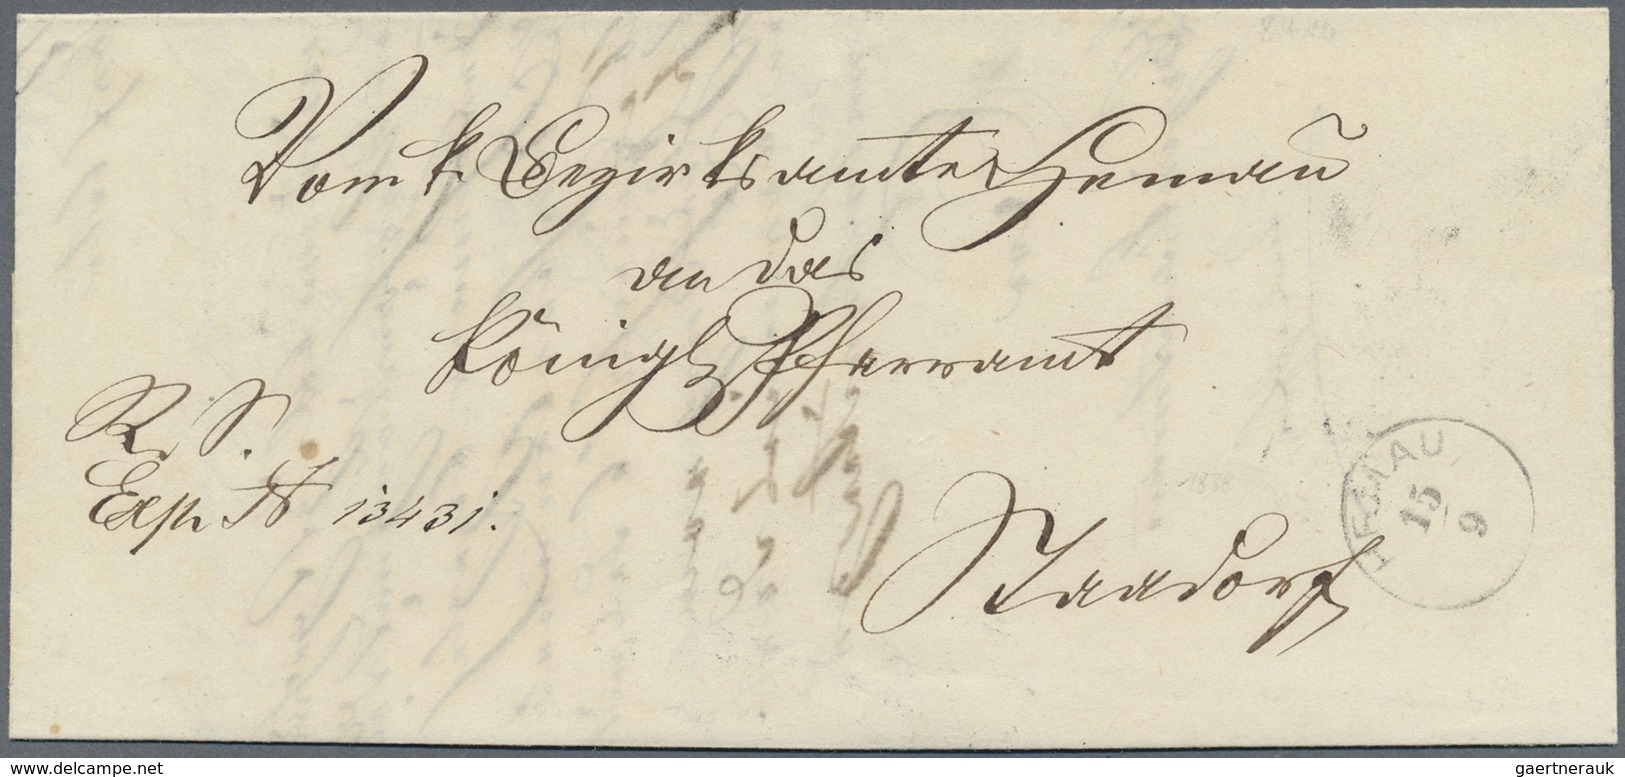 Vom k. Bezirksamte Hemau
an das
königl. Pfarramt
R. S.
Exp. № 13431.
Staadorf
HEMAU
15/9
1868
www.delcampe.net
gaertnerauk